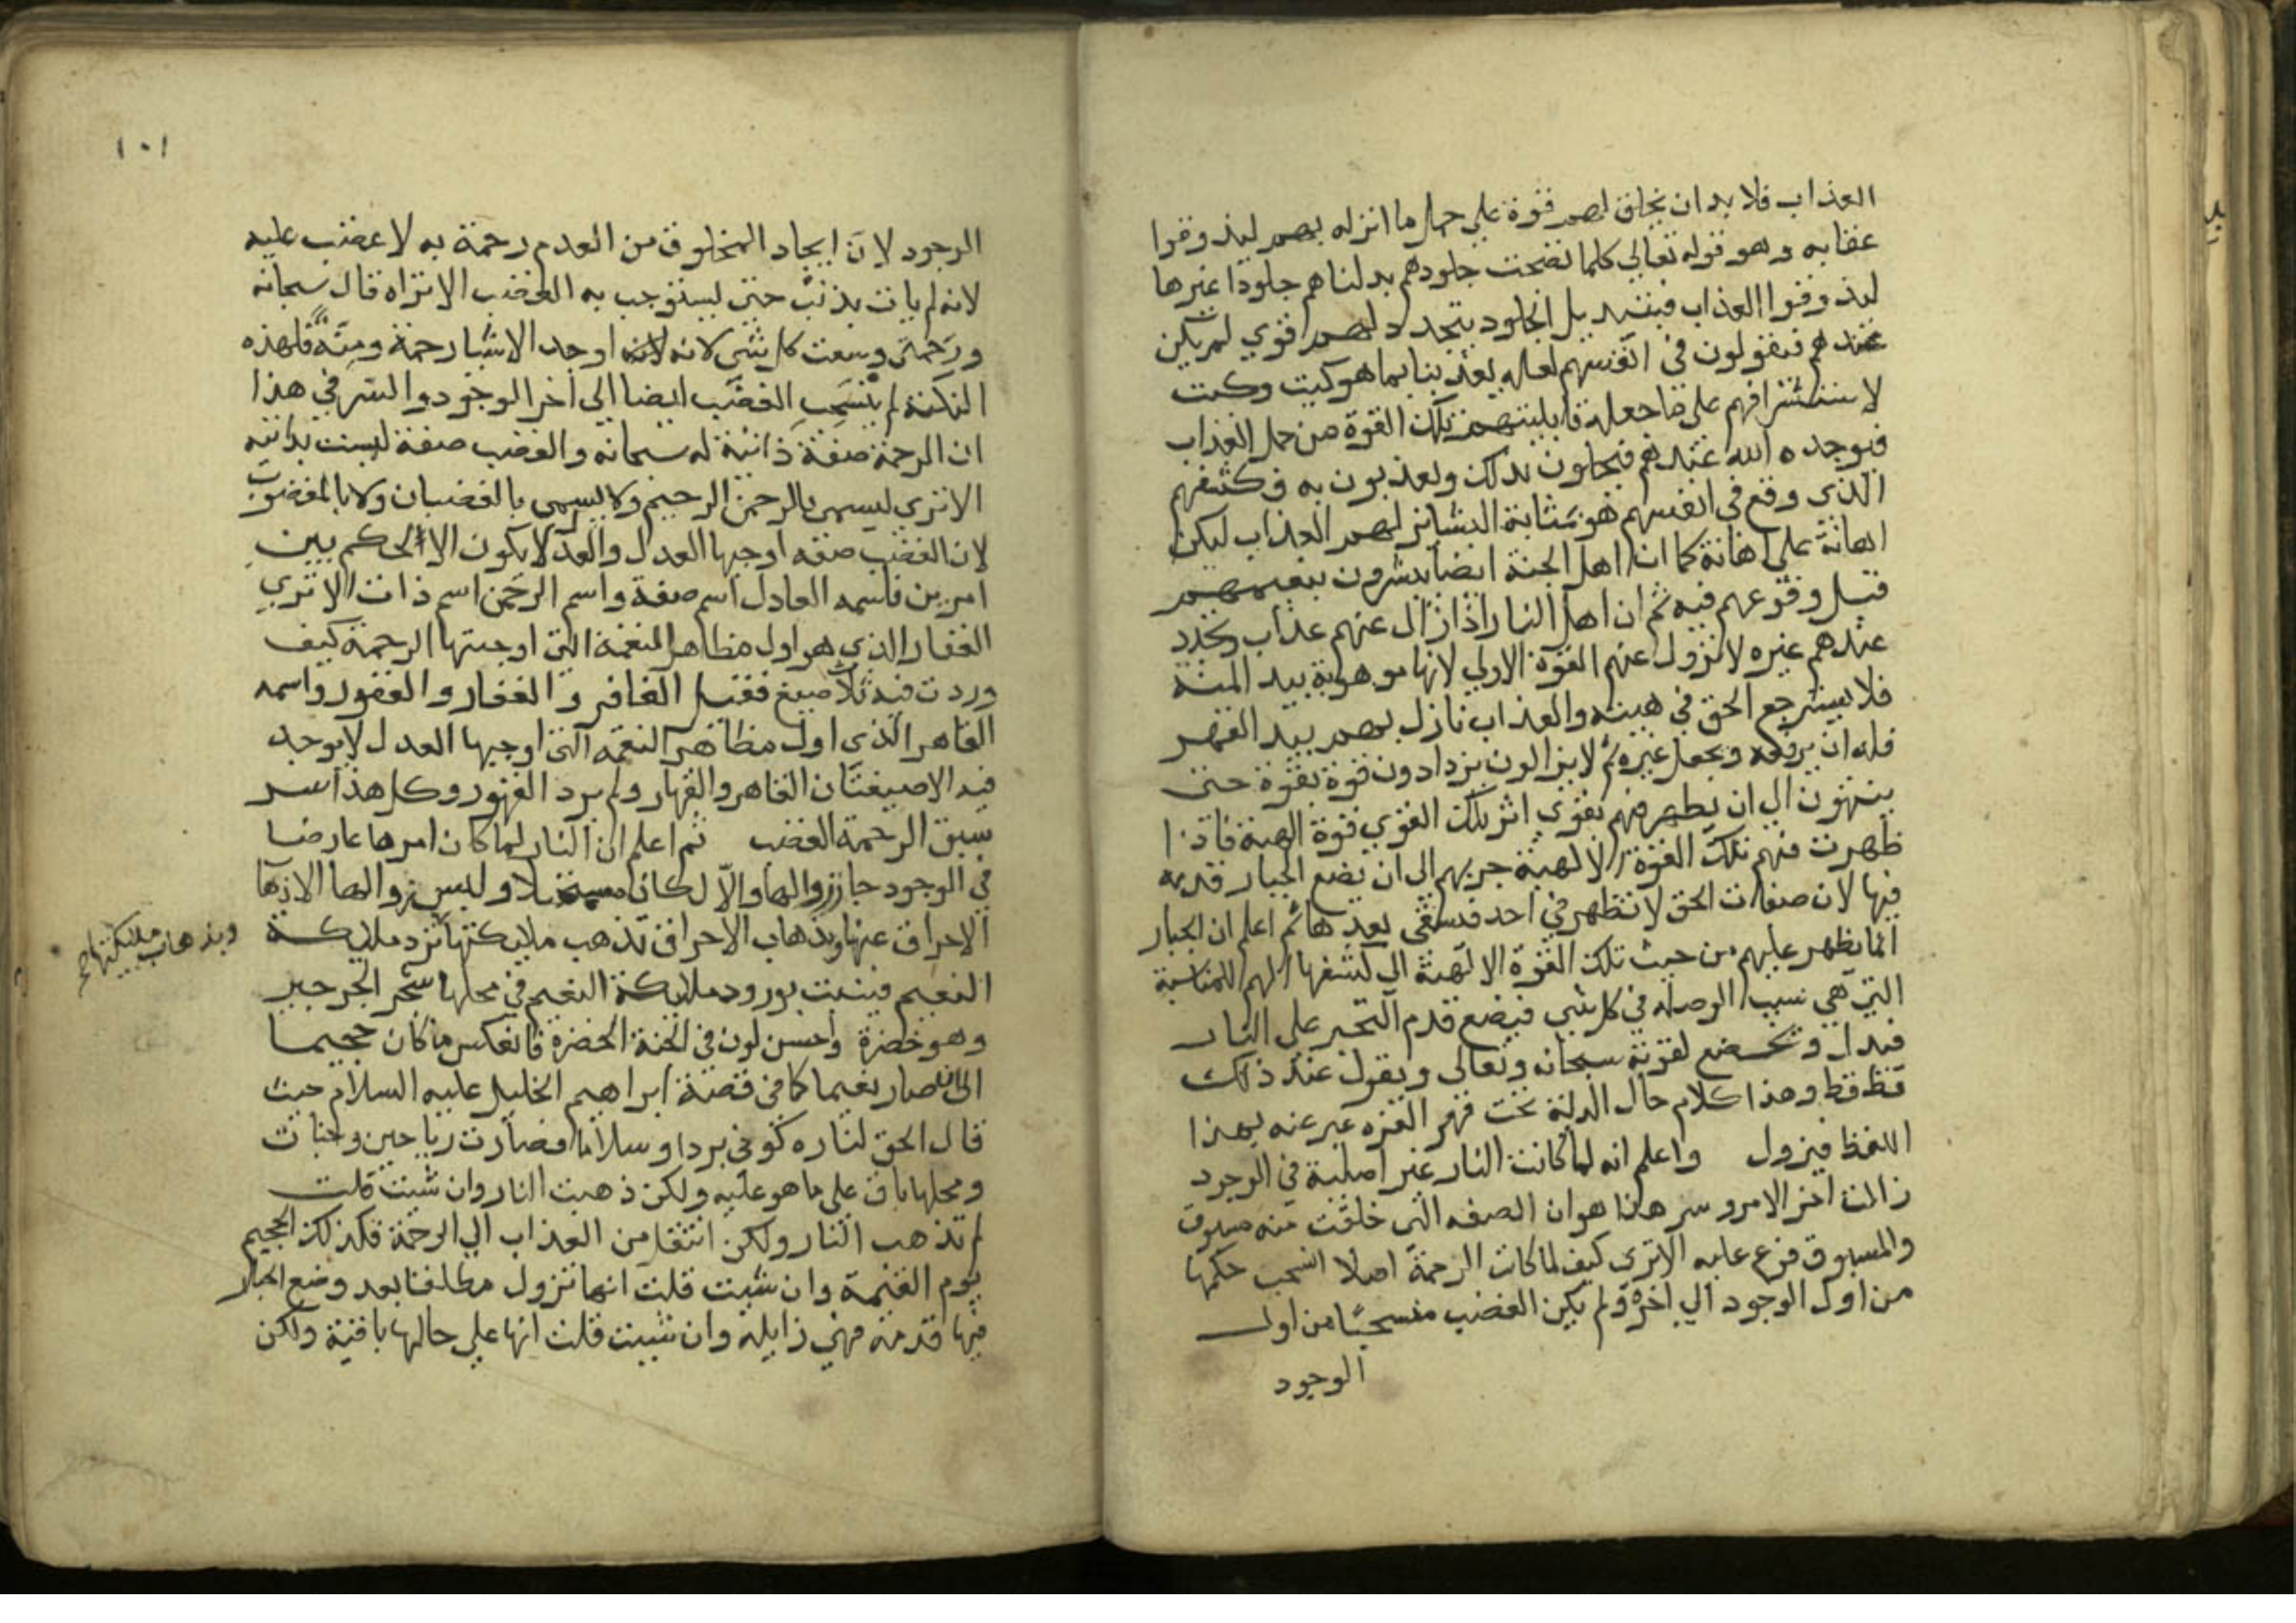 العذاب فلا بد ان يخلق لهم قوة علي حمل ما انزله بهم ليذوقوا
عقابه وهو قوله تعالى كلما نضجت جلودهم بدلناهم جلودا غيرها
ليذوقوا العذاب فبتبديل الجلود يتجدد لهم قوي لم يكن
عندهم فيقولون في انفسهم لعله يعذبنا بما هو كيت وكيت
لاستشرافهم على ما جعله قابليتهم تلك القوة من حمل العذاب
فيوجده الله عندهم فيحلون بذلك ويعذبون به وكشفهم
الذي وقع في انفسهم هو بمثابة البشائر لهم العذاب ليكن
اهانة على اهانة كما ان اهل الجنة ايضا يبشرون بنعيمهم
قبل وقوعهم فيه ثم ان اهل النار اذا زال عنهم عذاب وتجدد
عندهم غيره لا تزول عنهم القوة الاولي لانها موهوبة بيد المنة
فلا يسترجع الحق في هبته والعذاب نازل بهم بيد القهر
فله ان يرفعه ويجعل غيره ثم لا يزالون يزدادون قوة بقوة حتى
ينتهون الي ان يظهر فيهم بقوي اثر تلك القوي قوة الهية فاذا
ظهرت فيهم تلك القوة الالهية جرتهم الى ان يضع الجبار قدمه
فيها لان صفات الحق لا تظهر في احد فيشقى بعدها ثم اعلم ان الجبار
انما يظهر عليهم من حيث تلك القوة الالهية التي كشفها لهم للمناسبة
التي هي سبب الوصلة في كل شي فيضع قدم التجبر علي النار
فتذل وتخضع لقوته سبحانه وتعالى وتقول عند ذلك
قط قط وهذا كلام حال الذلة تحت قهر العزه عبر عنه بهذا
اللفظ فيزول واعلم انه لما كانت النار غير اصلية في الوجود
زالت اخر الامر وسر هذا هو ان الصفه التي خلقت منه مسبوق
والمسبوق فرع عليه الا ترى كيف لما كانت الرحمة اصلا انسحب حكمها
من اول الوجود الي اخره ولم يكن الغضب منسحبا من اول
الوجود
١٠١
الوجود لان ايجاد المخلوق من العدم رحمة به لا غضب عليه
لانه لم يات بذنب حتى يستوجب به الغضب الا تراه قال سبحانه
ورحمتى وسعت كل شى لانه اوجد الاشيا رحمة ومنة فلهذه
النكتة لم ينسحب الغضب ايضا الى اخر الوجود والسر في هذا
ان الرحمة صفة ذاتية له سبحانه والغضب صفة ليست بذاتيه
الا تري يسمى بالرحمن الرحيم ولا يسمى بالغضبان ولا بالمغضوب
لان الغضب صفه اوجبها العدل والعدل لا يكون الا لحكم بين
امرين فاسمه العادل اسم صفة واسم الرحمن اسم ذات الا تري
الغفار الذي هو اول مظاهر النعمة التي اوجبتها الرحمة كيف
وردت فيه ثلاث صيغ فقيل الغافر والغفار والغفور واسمه
القاهر الذي اول مظاهر النقمه التي اوجبها العدل لا يوجد
فيه الا صيغتان القاهر والقهار ولم يرد القهور وكل هذا سر
سبق الرحمة الغضب ثم اعلم ان النار لما كان امرها عارضا
في الوجود جاز زوالها والا لكان مستحيلا وليس زوالها الا ذهاب
الاحراق عنها وبذهاب الاحراق تذهب ملايكتها ترد ملايكة
وبذهاب ملايكتها صح
النعيم فينبت بورود ملايكة النعيم في محلها شجر الجرجير
وهو خضرة واحسن لون في الجنة الخضرة فانعكس ما كان جحيما
الى ان صار نعيما كما في قصة ابراهيم الخليل عليه السلام حيث
قال الحق لناره كونى بردا وسلاما فصارت رياحين وجنات
ومحلها باق على ما هو عليه ولكن ذهبت النار وان شيت قلت
لم تذهب النار ولكن انتقل من العذاب الي الرحمة فكذلك الجحيم
يوم القيمة وان شيت قلت انها تزول مطلقا بعد وضع الجبار
فيها قدمه فهي زايلة وان شيت قلت انها علي حالها باقية ولكن